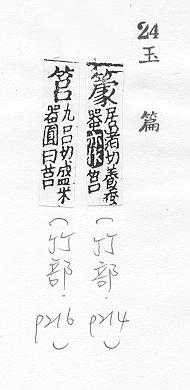 24
玉篇
居者切養蚕
器 筥
(竹部.
p214)
筥九呂切盛米
器圓曰筥
(竹部.
p216)